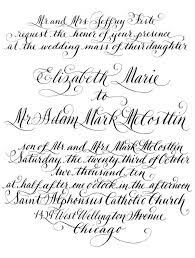 Mr and Mrs Jeffrey
request the honor of your presence
at the wedding mass of their daughter
Elizabeth Marie
to
Mr Adam Mark McCosttin
son of Mr and Mrs Mark McCosttin
Saturday, the twenty third of October
two thousand ten
at half after one o'clock in the afternoon
Saint Alphonsus Catholic Church
1429 West Wellington Avenue
Chicago